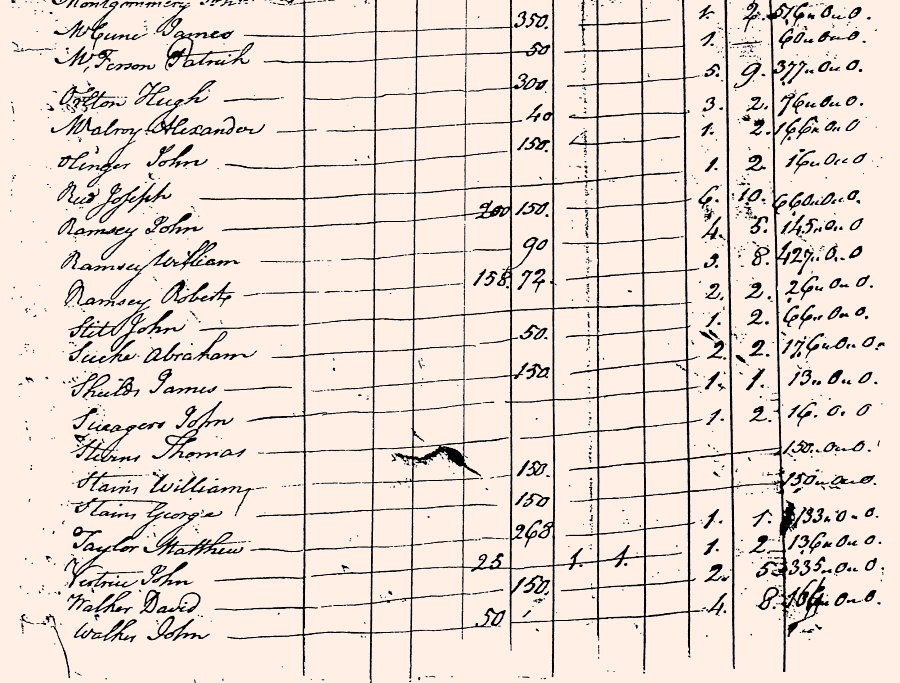 Montgommery John
McCune James 350. 1. 2. 516 0 0.
McFerson Patrick 50 1. 60 0 0.
Orlton Hugh 300 5. 9. 377 0 0.
McAlroy Alexander 40 3. 2. 76 0 0.
Olinger John 150. 1. 2. 166 0 0
Reed Joseph 1. 2. 16 0 0
Ramsey John 200 150. 6. 10. 660 0 0.
Ramsey William 90 4. 5. 145 0 0
Ramsey Robert 158. 72. 3. 8. 427 0 0
Stitt John 2. 2. 26 0 0.
Suche Abraham 50. 1. 2. 66 0 0.
Shields James 150. 2. 2. 176 0 0.
Sweagers John 1. 1. 13 0 0.
Sturns Thomas 1. 2. 16. 0. 0
Stains William 150. 150 0 0
Stains George 150 150 0 0.
Taylor Matthew 268 1. 1. 133 0 0.
Vertrice John 25 1. 1. 1. 2. 136 0 0.
Walker David 150. 2. 5 335 0 0.
Walker John 50 4. 8 0 0.